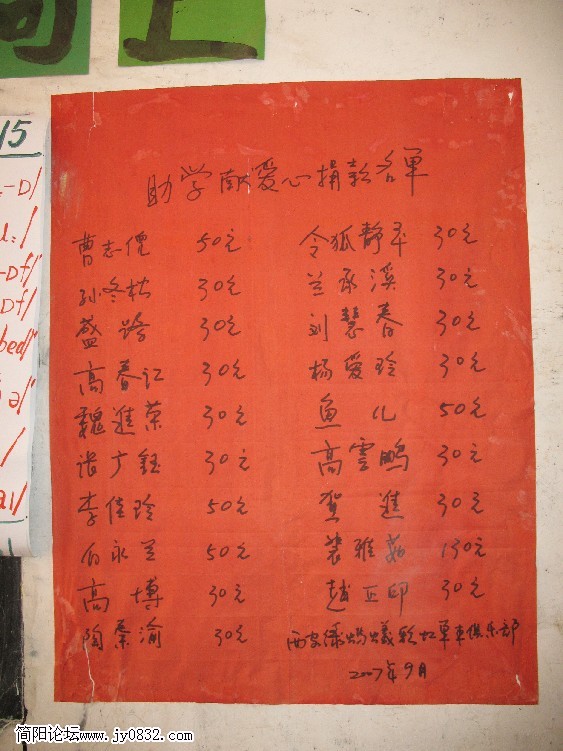 15
助学献爱心捐款名单
曹志儒 50元 令狐静平 30元
孙冬梅 30元 兰承溪 30元
盛路 30元 刘慧春 30元
高春江 30元 杨爱玲 30元
魏进荣 30元 鱼儿 50元
张广钰 30元 高雲鹏 30元
李佳玲 50元 贺進 30元
向永兰 50元 裴雅茹 130元
高博 30元 赵正印 30元
陶秦渝 30元 西安绿蚂蟻彩虹單車俱乐部
2007年9月
简阳论坛-www.jy0832.com